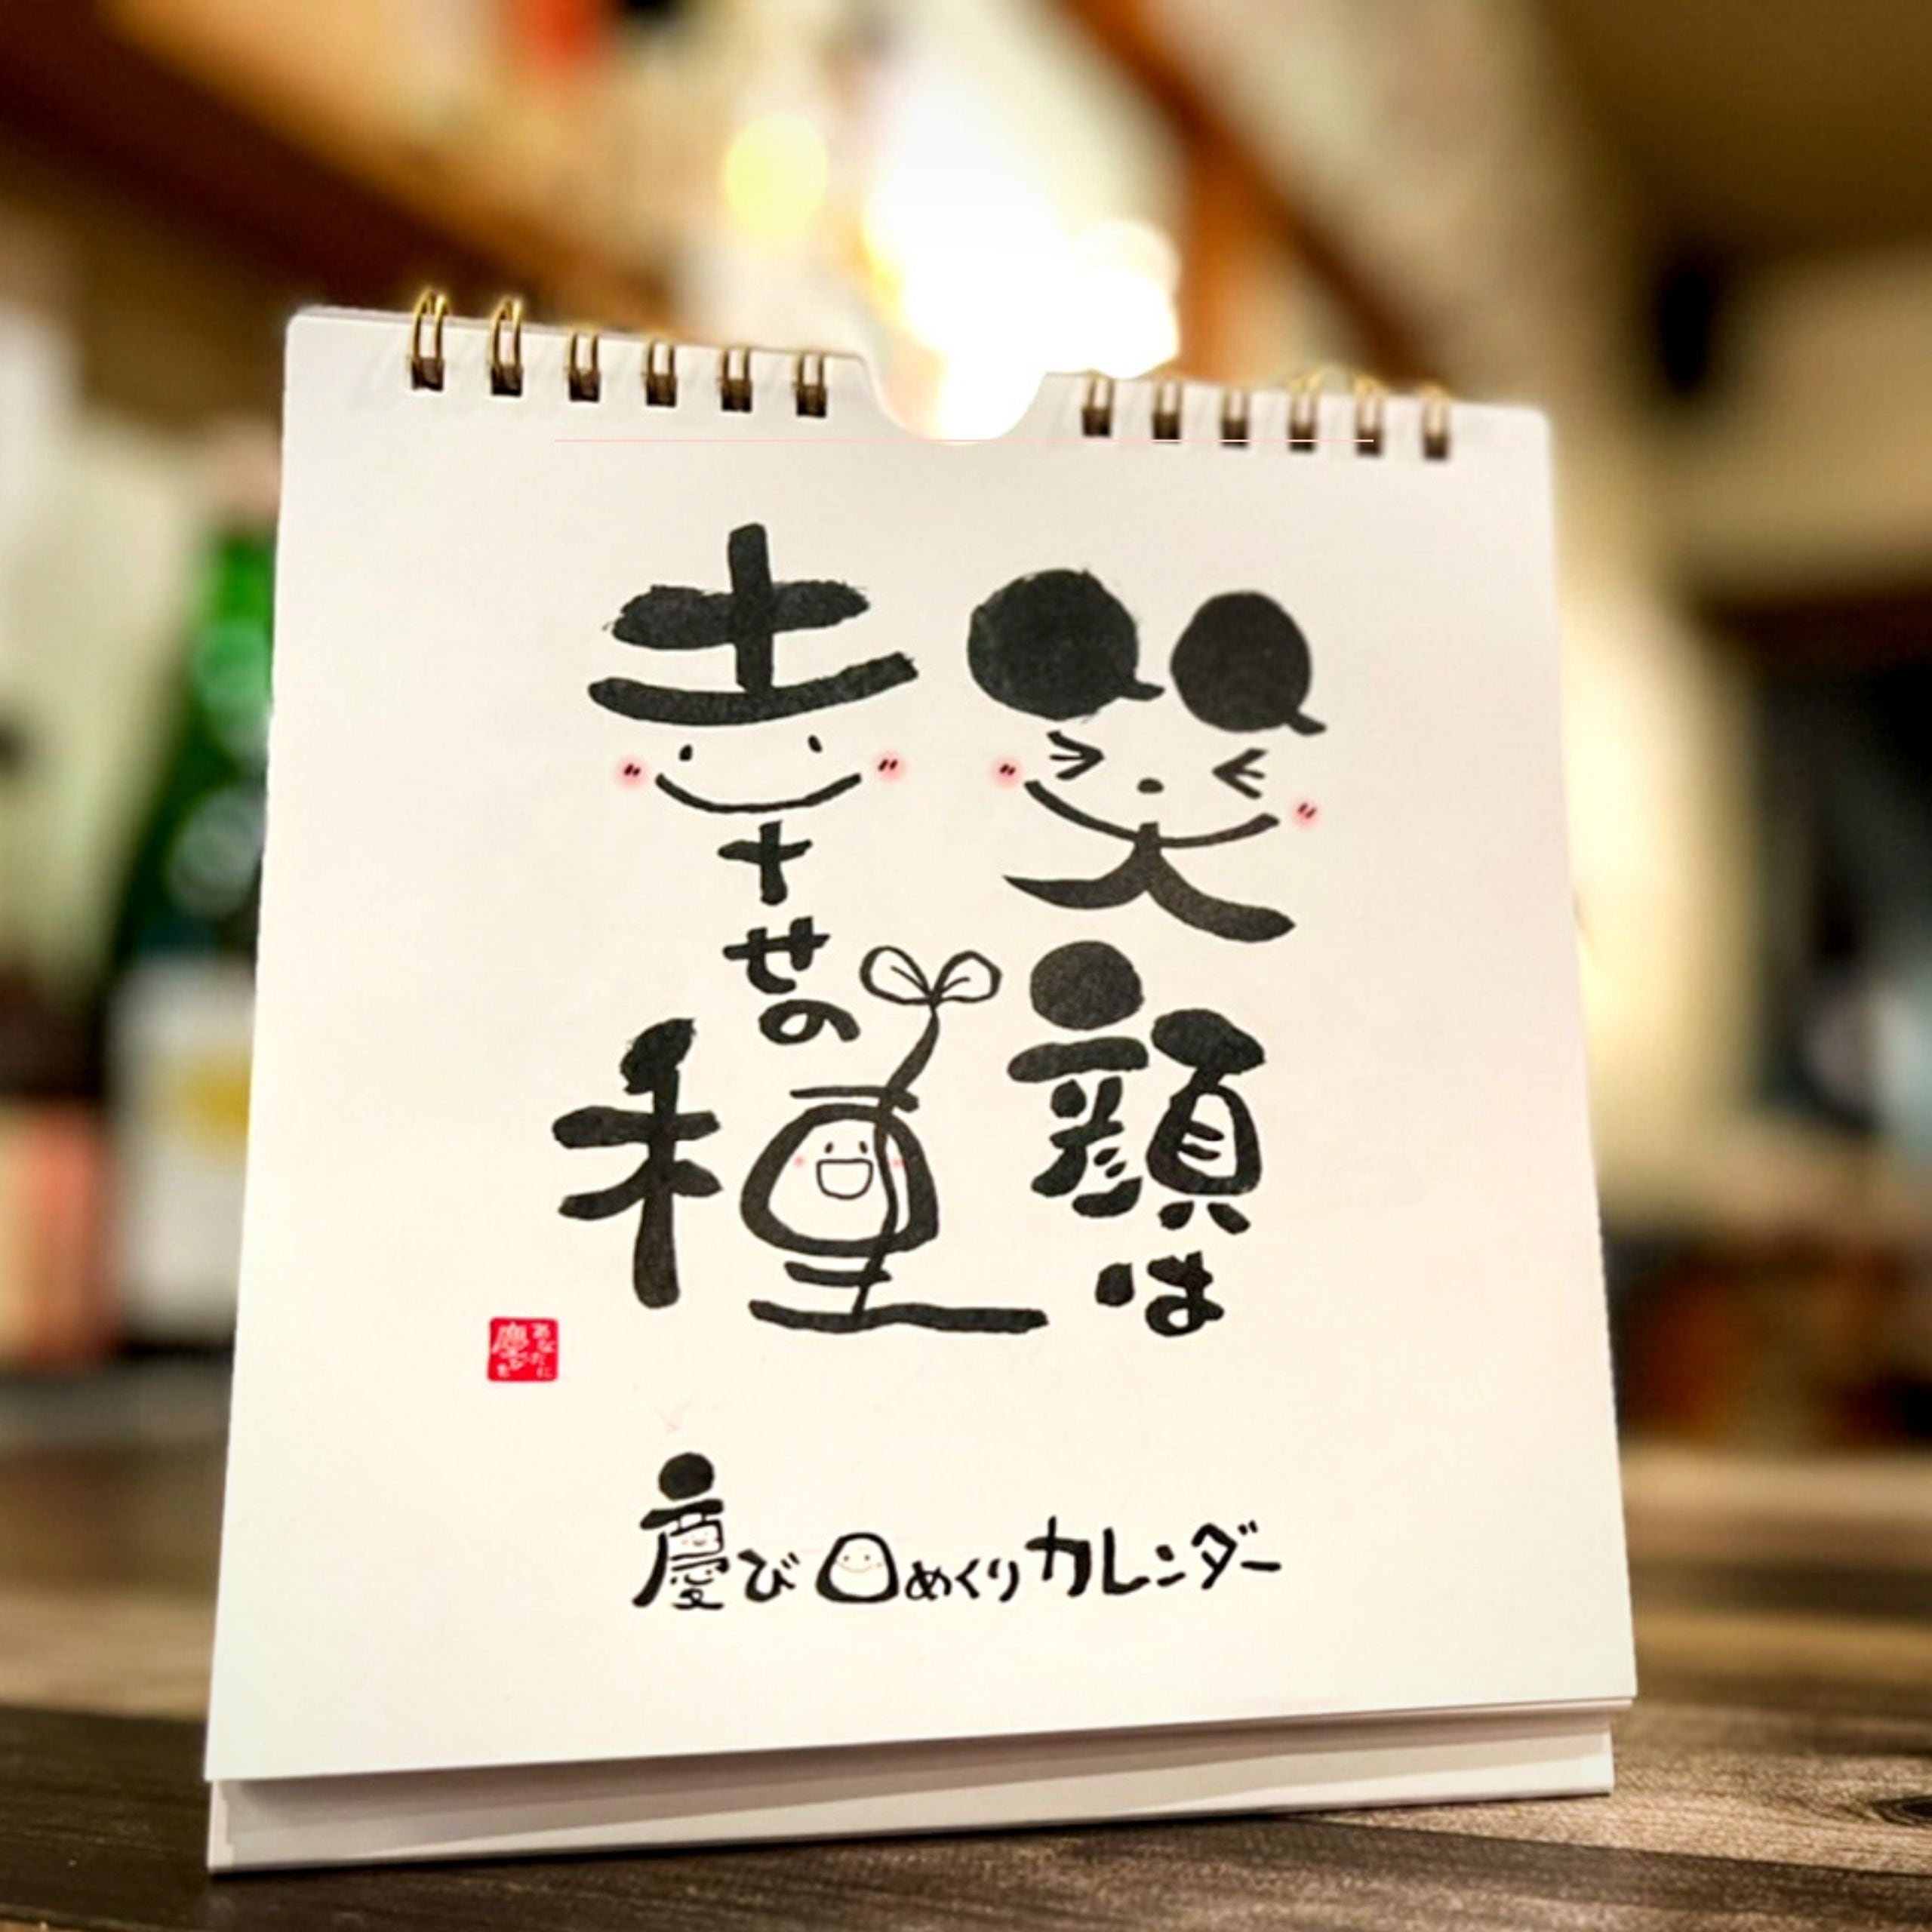 笑顔は
幸せの
種
あなたに
慶びを
慶び日めくりカレンダー